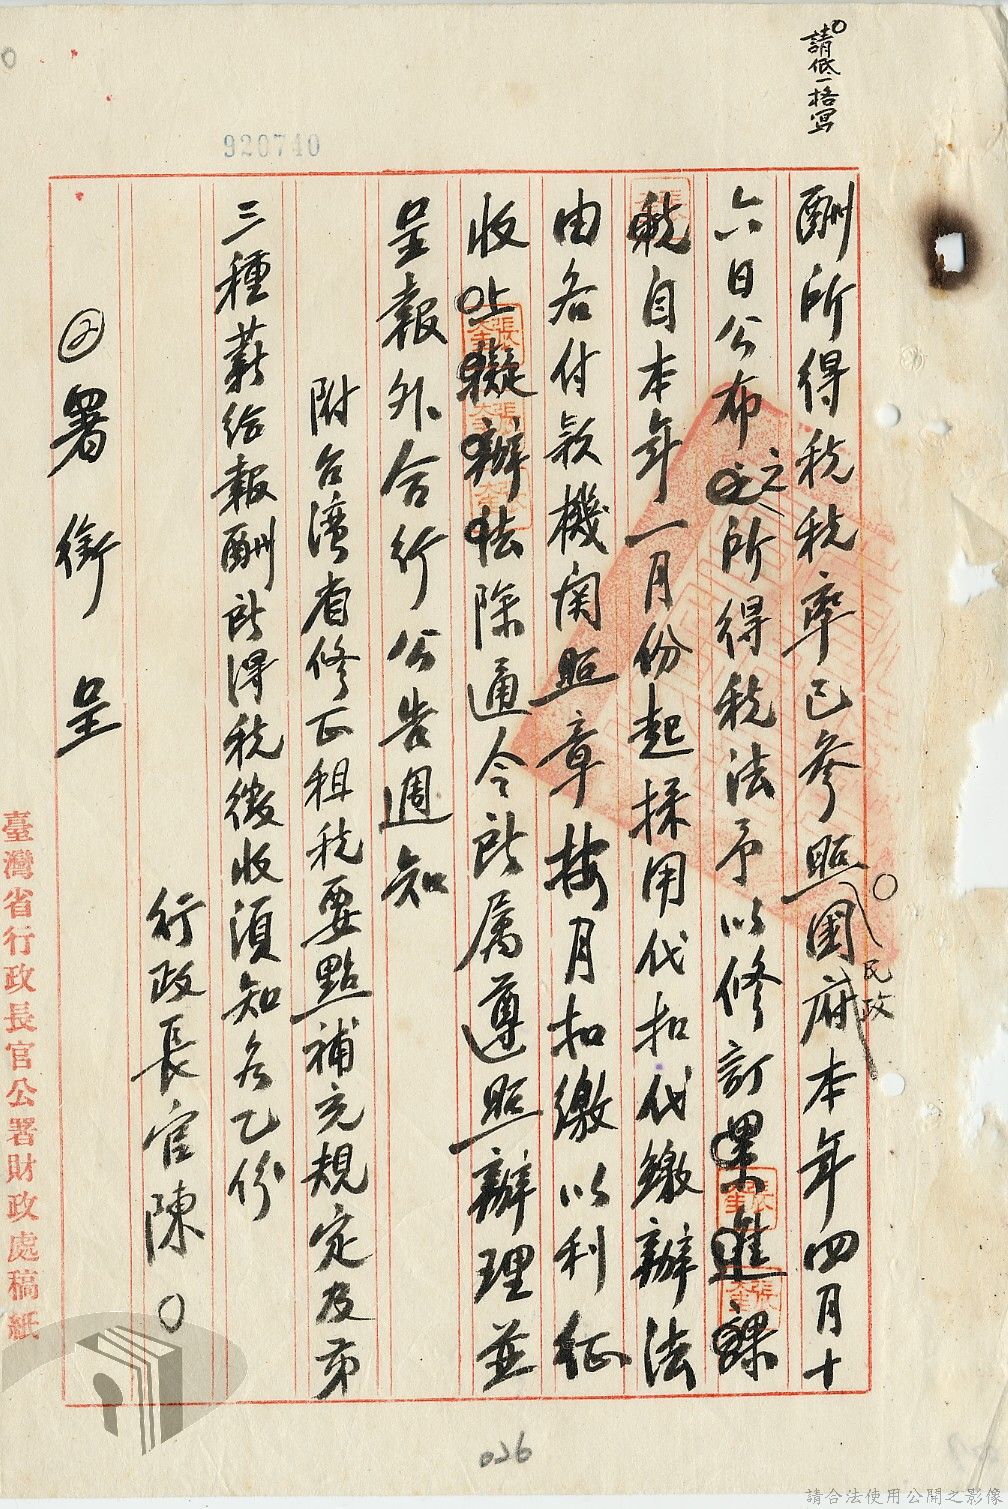 請低一格寫
920740
酬所得稅稅率已參照國府本年四月十
民政
六日公布之所得稅法予以修訂果進課
稅自本年一月份起採用代扣代繳辦法
由各付款機関照章按月扣繳以利征
收上擬辦法除通令所属遵照辦理並
呈報外合行公告週知
附台湾省修正租税要點補充規定及第
三種薪給報酬所得稅徵收須知各乙份
行政長官陳○
②署銜 呈
臺灣省行政長官公署財政處稿紙
026
請合法使用公開之影像